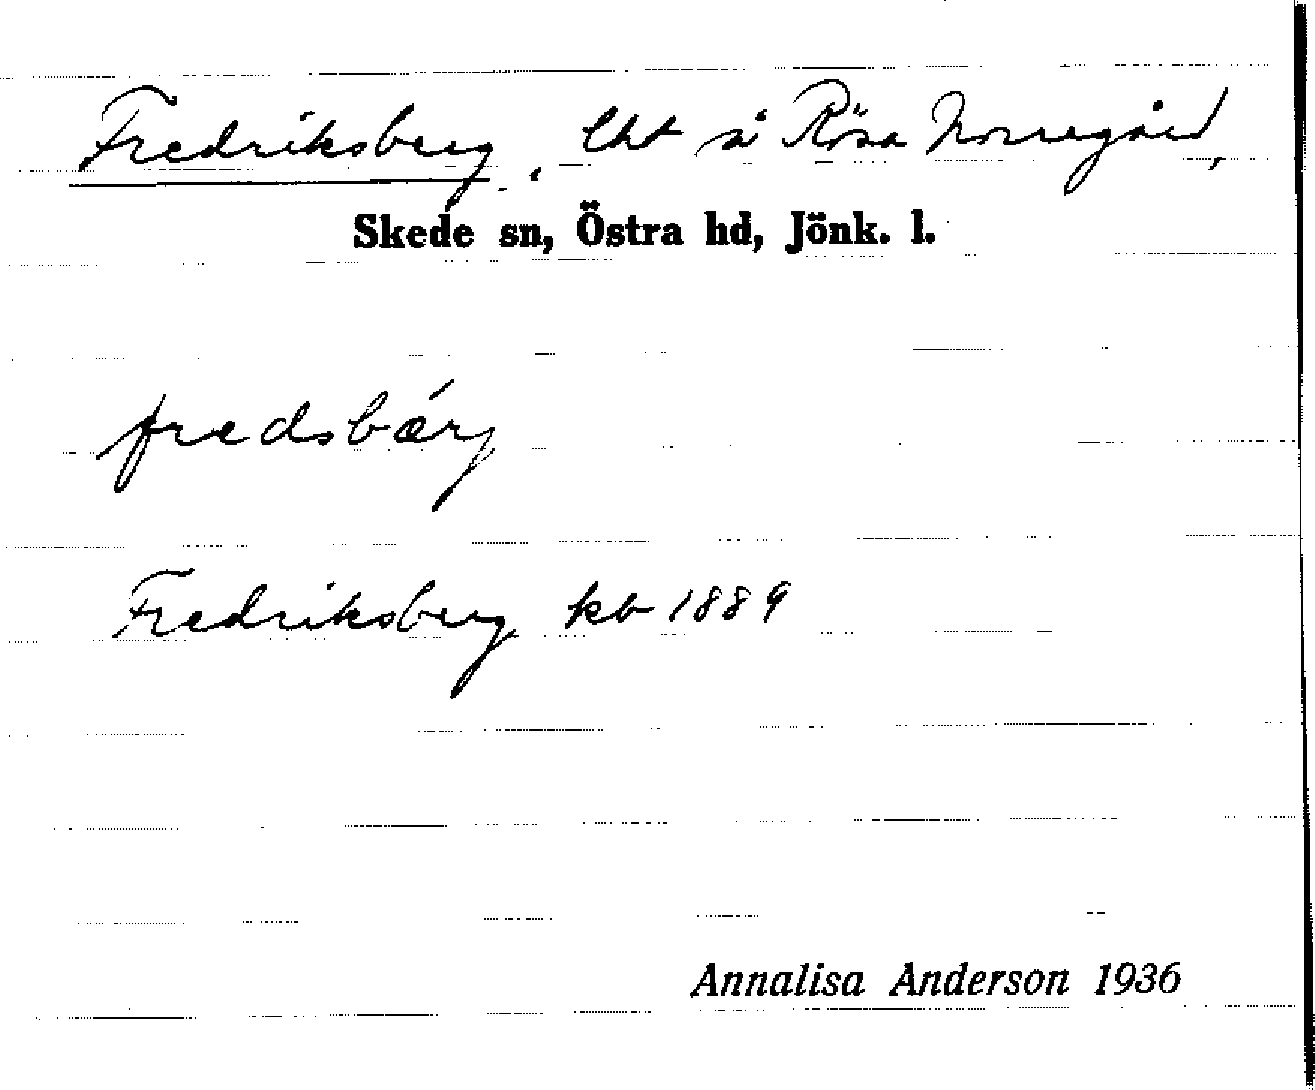 Fredriksberg, lht på Rösa Norregård,
Skede sn, Östra hd, Jönk. l.
fredsbärj
Fredriksberg kb 1889
Annalisa Anderson 1936